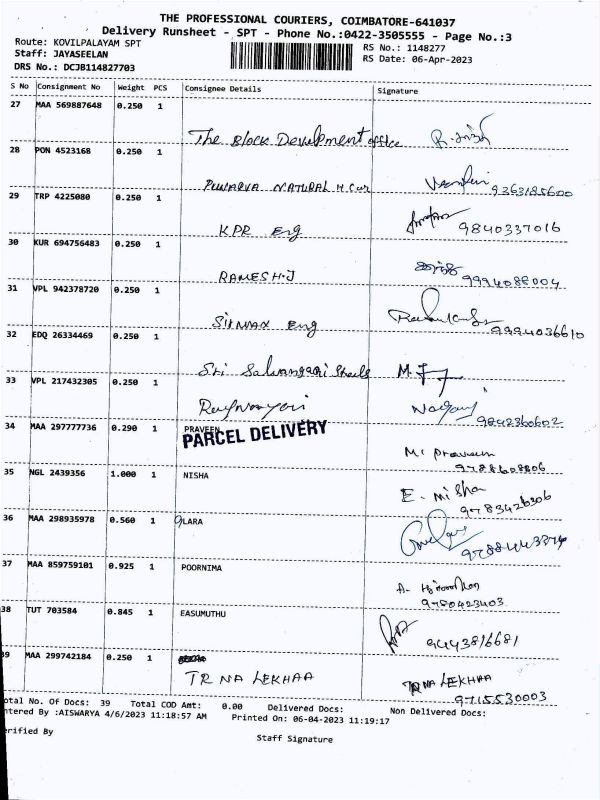 THE PROFESSIONAL COURIERS, COIMBATORE-641037
Delivery Runsheet - SPT - Phone No.:0422-3505555 - Page No.:3
Route: KOVILPALAYAM SPT
RS No.: 1148277
Staff: JAYASEELAN
RS Date: 06-Apr-2023
DRS No.: DCJB114827703
S No Consignment No Weight PCS Consignee Details Signature
27 MAA 569887648 0.250 1
The Block Development office
28 PON 4523168 0.250 1
NATURAL 9363185600
29 TRP 4225080 0.250 1
KPR Eng 9840337016
30 KUR 694756483 0.250 1
RAMESH.J 9994088004
31 VPL 942378720 0.250 1
Eng 9994036610
32 EDQ 26334469 0.250 1
Sri
33 VPL 217432305 0.250 1
9842360602
34 MAA 297777736 0.290 1 PRAVEEN
PARCEL DELIVERY
M. Praveen
9788608806
35 NGL 2439356 1.000 1 NISHA
E. Nisha
9783426306
36 MAA 298935978 0.560 1 LARA
37 MAA 859759101 0.925 1 POORNIMA
9780423403
38 TUT 703584 0.845 1 EASUMUTHU
9443816681
39 MAA 299742184 0.250 1
TR NA LEKHAA TR NA LEKHAA
9715530003
otal No. Of Docs: 39 Total COD Amt: 0.00 Delivered Docs: Non Delivered Docs:
ntered By :AISWARYA 4/6/2023 11:18:57 AM Printed On: 06-04-2023 11:19:17
erified By
Staff Signature